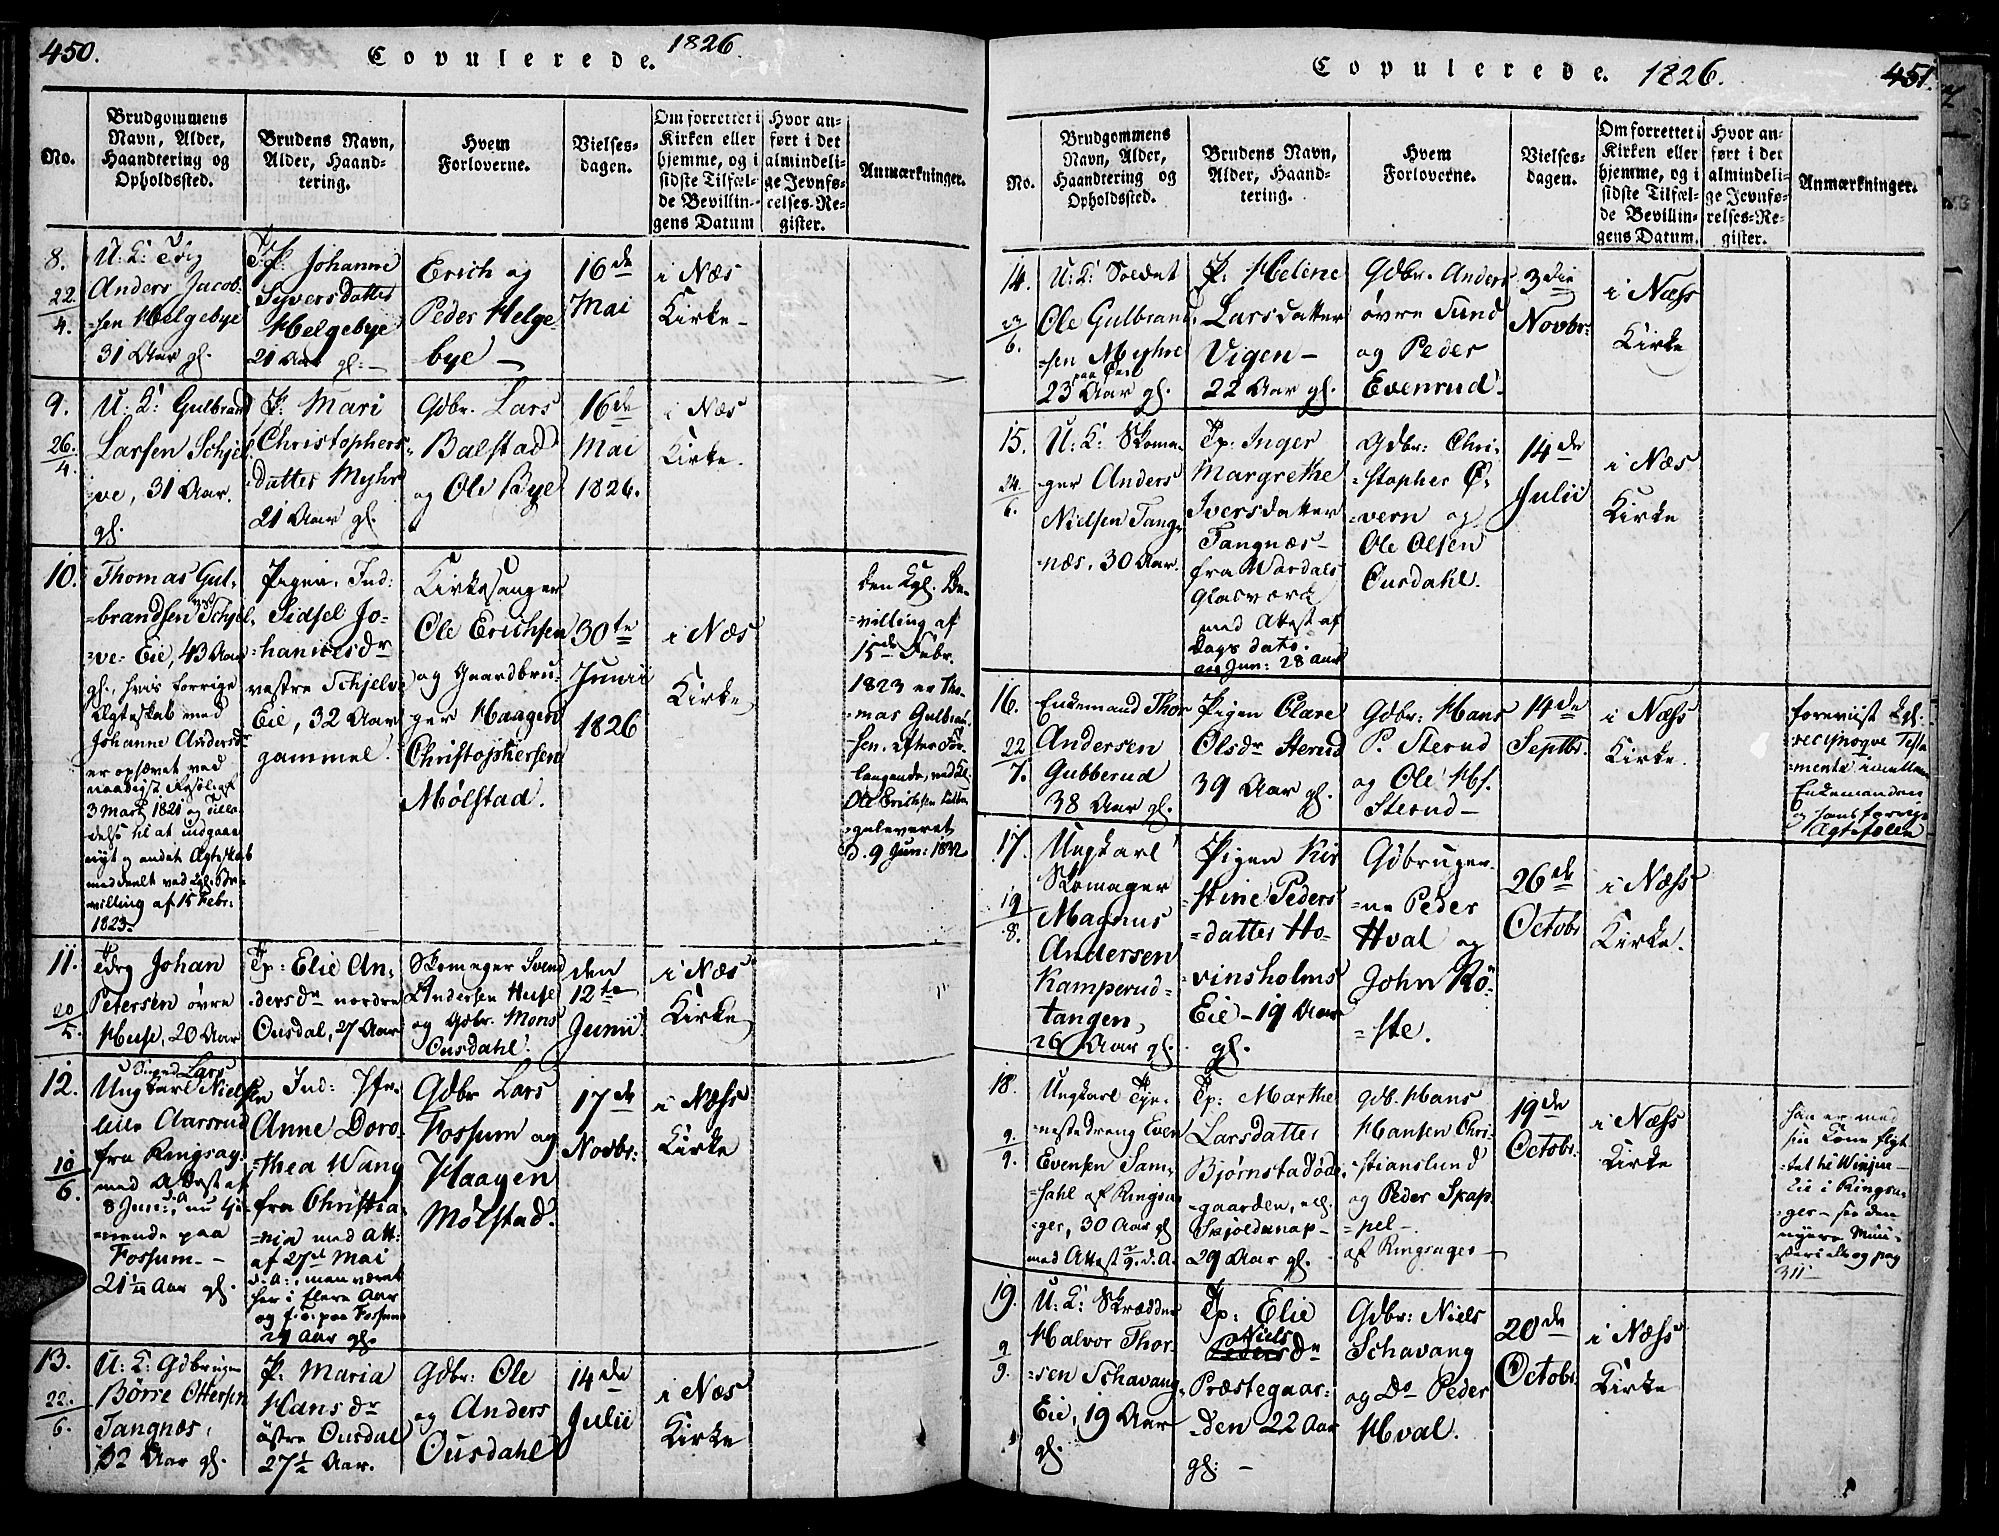 450.
Copulerede.
1826
No.
Brudgommens
Navn, Alder,
Haandtering og
Opholdssted.
Brudens Navn,
Alder, Haand-
tering.
Hvem
Forloverne.
Vielses-
dagen.
Om forrettet i
Kirken eller
hjemme, og i
sidste Tilfæl-
de Bevillin-
gens Datum
Hvor an-
ført i det
almindeli-
ge Jevnfø-
relses-Re-
gister.
Anmærkninger.
8.
22
4.
U: K:
Anders Jacob-
=sen Helgebye
31 Aar gl.
P: Johanne
Syversdatter
Helgebye
21 Aar gl: –
Erich og
Peder Helge
bye –
16de
Mai
i Næs
Kirke –
9.
26.
4.
U: K: Gulbrand
Larsen Schjel
=ve, 31 Aar.
gl.
P: Mari
Christophers-
datter Myhr
21 Aar gl.
Gdbr. Lars
Balstad
og Ole Bye
16de
Mai
1826.
i Næs
Kirke.
10.
Thomas Gul-
=brandsen Schjel
=ve- Eie, 43 Aar
gl., hvis forrige
Ægteskab med
Johanne Andersdr
er ophævet ved
naadigst Resol: af
3 Mart 1821 og Tilla
=delse til at indgaae
nyt og andet Ægteskab
meddeelt ved Kgl. Be-
villing af 15 Febr:
1823.
Pigen, Ind:
Sidsel Jo-
=hannesdr
vestre Schjelve
Eie, 32 Aar
gammel.
Kirkesanger
Ole Erichsen
og Gaardbru-
ger Haagen
Christophersen
Mølstad.
30te
Junii
1826
i Næs
Kirke
den Kgl. Be-
=villing af
15de Febr.
1823 er Tho-
mas Gulbrand
sen, efter For
langende, ved Kl.
Ole Erichsen
=guleveret
d. 9 Jun: 1832
11.
20
5.
Johan
Petersen øvre
Huse, 20 Aar
Tp: Elie An-
dersdr nordre
Ousdal, 27 Aar
Skomager Svend
Andersen Huse
og Gdbr. Mons
Ousdahl.
den
12te
Junii
i Næs
Kirke
12.
10
6.
Lars
Ungkarl Niels
Aarsrud
fra Ringsag.
med Attest af
8 Jun: d. A., nu tje-
=nende paa
Fossum –
21 Aar gl.
Ind:
Anne Doro-
=thea Wang
fra Christia-
=nia med Att:
af 27de Mai
d. A:, men været
her i flere Aar
og paa Fossum
29 Aar gl.
Gdbr Lars
Fossum og
Haagen
Mølstad.
17de
Novbr:
i Næss
Kirke
13.
22.
6.
U: K: Gdbruger
Børre Ottersen
Tangnæs,
22 Aar gl.
P: Maria
Hansdr
østre Ousdal
27½ Aar.
Gdbr: Ole
og Anders
Ousdahl
14de
Julii
i Næs
Kirke
Copulerede. 1826.
451.
No.
Brudgommens
Navn, Alder,
Haandtering og
Opholdssted.
Brudens Navn,
Alder, Haand-
tering.
Hvem
Forloverne.
Vielses-
dagen.
Om forrettet i
Kirken eller
hjemme, og i
sidste Tilfæl-
de Bevillin-
gens Datum.
Hvor an-
ført i det
almindeli-
ge Jevnfø-
relses-Re-
gister.
Anmærkninger.
14.
23
6.
U: K: Soldat
Ole Gulbrand
=sen Myhre
23 Aar gl.
P: Helene
Larsdatter
Vigen –
22 Aar gl.
Gdbr. Anders
øvre Sund
og Peder
Evenrud.
3die
Novbr:
i Næss
Kirke
15.
24.
6.
U: K: Skoma-
=ger Anders
Nielsen Tang-
=næs, 30 Aar.
Tp: Inger
Margrethe
Iversdatter
Tangnæs –
fra Wardals
Glasværk
med Attest af
Dags dato.
28 Aar
Gdbr: Chri-
=stopher Ø-
=vern og
Ole Olsen
Ousdahl.
14de
Julii
i Næs
Kirke
16.
22
7.
Enkemand Thor
Andersen
Gubberud
38 Aar gl.
Pigen Clare
Olsdr Sterud
39 Aar gl.
Gdbr: Hans
P. Sterud
og Ole Hs.
Sterud –
14de
Septbr.
i Næss
Kirke.
foreviist Kgl.
reciproqve Testa
=mente imellem
Enkemanden
og hans forrige
Ægtefolk
17.
19
8.
Ungkarl
Skomager
Magnus
Andersen
Kamperud-
tangen,
26 Aar gl.
Pigen Kir
=stine Peders
=datter Ho-
=vinsholms
Eie – 19 Aar
gl.
Gdbruger-
=ne Peder
Hval og
John Rö-
=ste.
26de
Octobr
i Næss
Kirke.
18.
9.
9.
Ungkarl Tje-
=nestedreng Even
Evensen Sam-
=dahl af Ringsa
=ger, 30 Aar gl
med Attest d. A.
Tp: Marthe
Larsdatter
Bjørnstadøde-
=gaarden,
Skjoldanap –
29 Aar gl.
Gdb. Hans
Hansen Chri-
=stianslund
og Peder Skap
=pel –
af Ringsager –
19de
Octobr.
i Næss
Kirke
han er med
sin Kone flyt
=tet til
Eie i Ringsa-
=ger – see den
nyere Mini-
sterialbog pag
311 –
19.
9
9.
U: K: Skrædder
Halvor Thor-
=sen Schavang
Eie, 19 Aar
gl.
Tp: Elie
Niels
Pedersdr
Præstegaar-
=den 22 Aar
gl: –
Gdbr: Niels
Schavang
og Do Peder
Hval.
20de
Octobr.
i Næss
Kirke